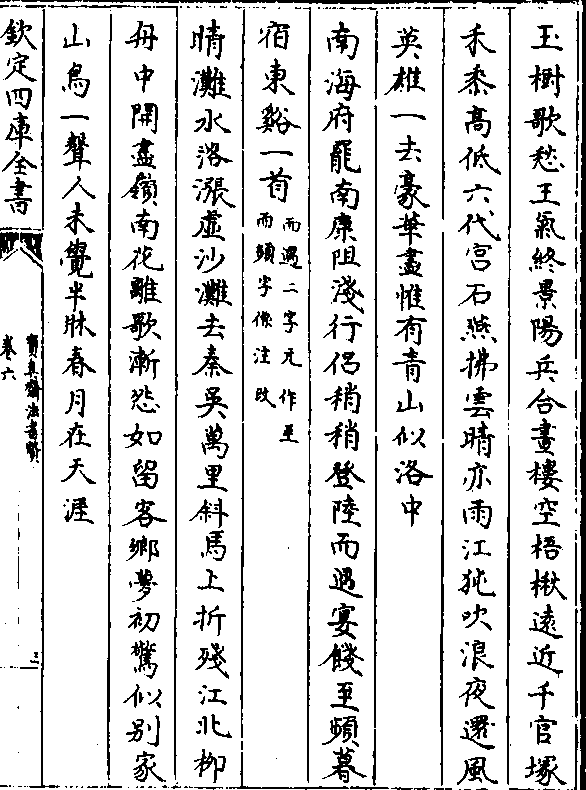 玉樹歌愁王氣終景陽兵合畫樓空梧楸遠近千官塚
禾黍高低六代宮石燕拂雲晴亦雨江㹠吹浪夜還風
英雄一去豪華盡惟有青山似洛中
南海府罷南康阻淺行侣稍稍登陸而遇宴餞至頻暮
宿東谿一首而遇二字元作至
而頻字係注改
晴灘水落漲虛沙灘去秦吳萬里斜馬上折殘江北栁
舟中開盡嶺南花離歌漸怨如留客鄉夢初驚似别家
山鳥一聲人未覺半牀春月在天涯
欽定四庫全書
寶真齋法書贊
卷六
三